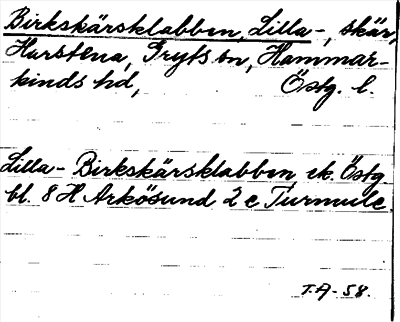 Birkskärsklabben, Lilla-, skär,
Harstena, Gryts sn, Hammar-
kinds hd, Östg. l.
Lilla- Birkskärsklabben ek. Östg.
bl. 8 H Arkösund 2 c Turmule.
T.A-58.